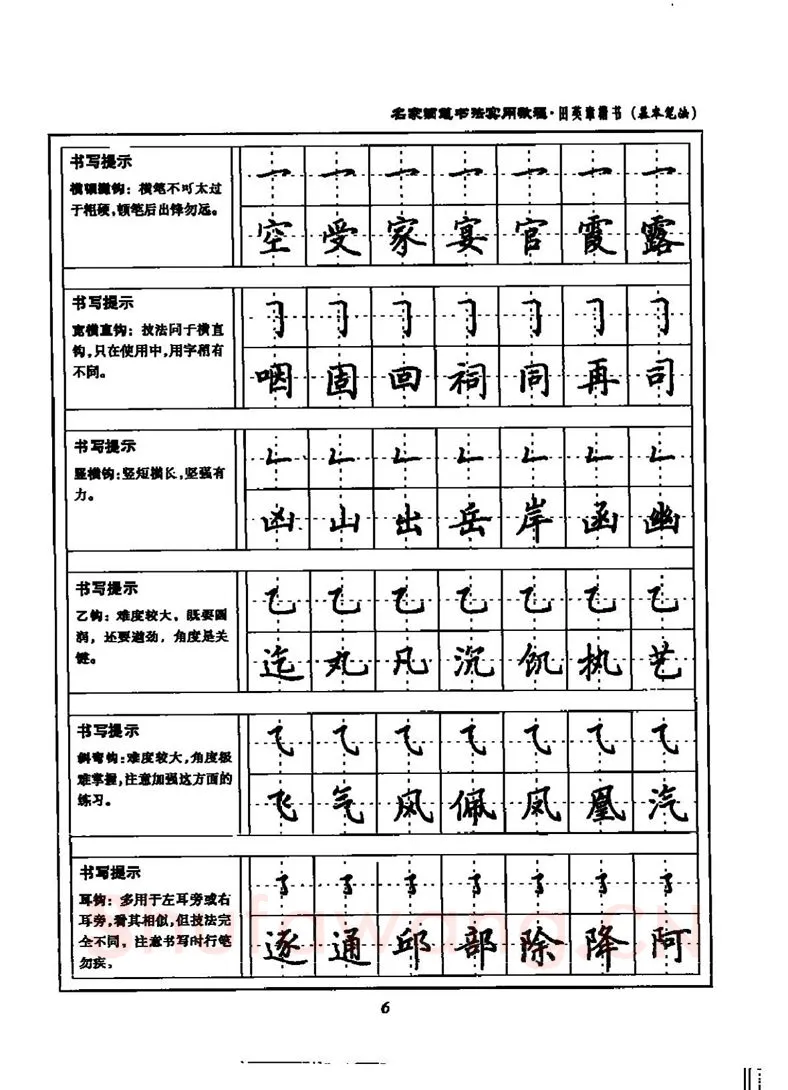 名家硬笔书法实用教程·田英章楷书(基本笔法)
书写提示
横顿撇钩：横笔不可太过
于粗硬,顿笔后出锋勿远。
空 受 家 宴 官 霞 露
书写提示
宽横直钩：技法同于横直
钩,只在使用中,用字稍有
不同。
咽 固 回 祠 同 再 司
书写提示
竖横钩:竖短横长,竖强有
力。
凶 山 出 岳 岸 函 幽
书写提示
乙钩：难度较大。既要圆
润，还要遒劲，角度是关
键。
乙 乙 乙 乙 乙 乙 乙
迄 丸 凡 沉 饥 执 艺
书写提示
斜弯钩:难度较大,角度极
难掌握,注意加强这方面的
练习。
飞 气 风 佩 凤 凰 汽
书写提示
耳钩：多用于左耳旁或右
耳旁,看其相似,但技法完
全不同。注意书写时行笔
勿疾。
逐 通 邱 部 除 降 阿
Shufawang.CN
6